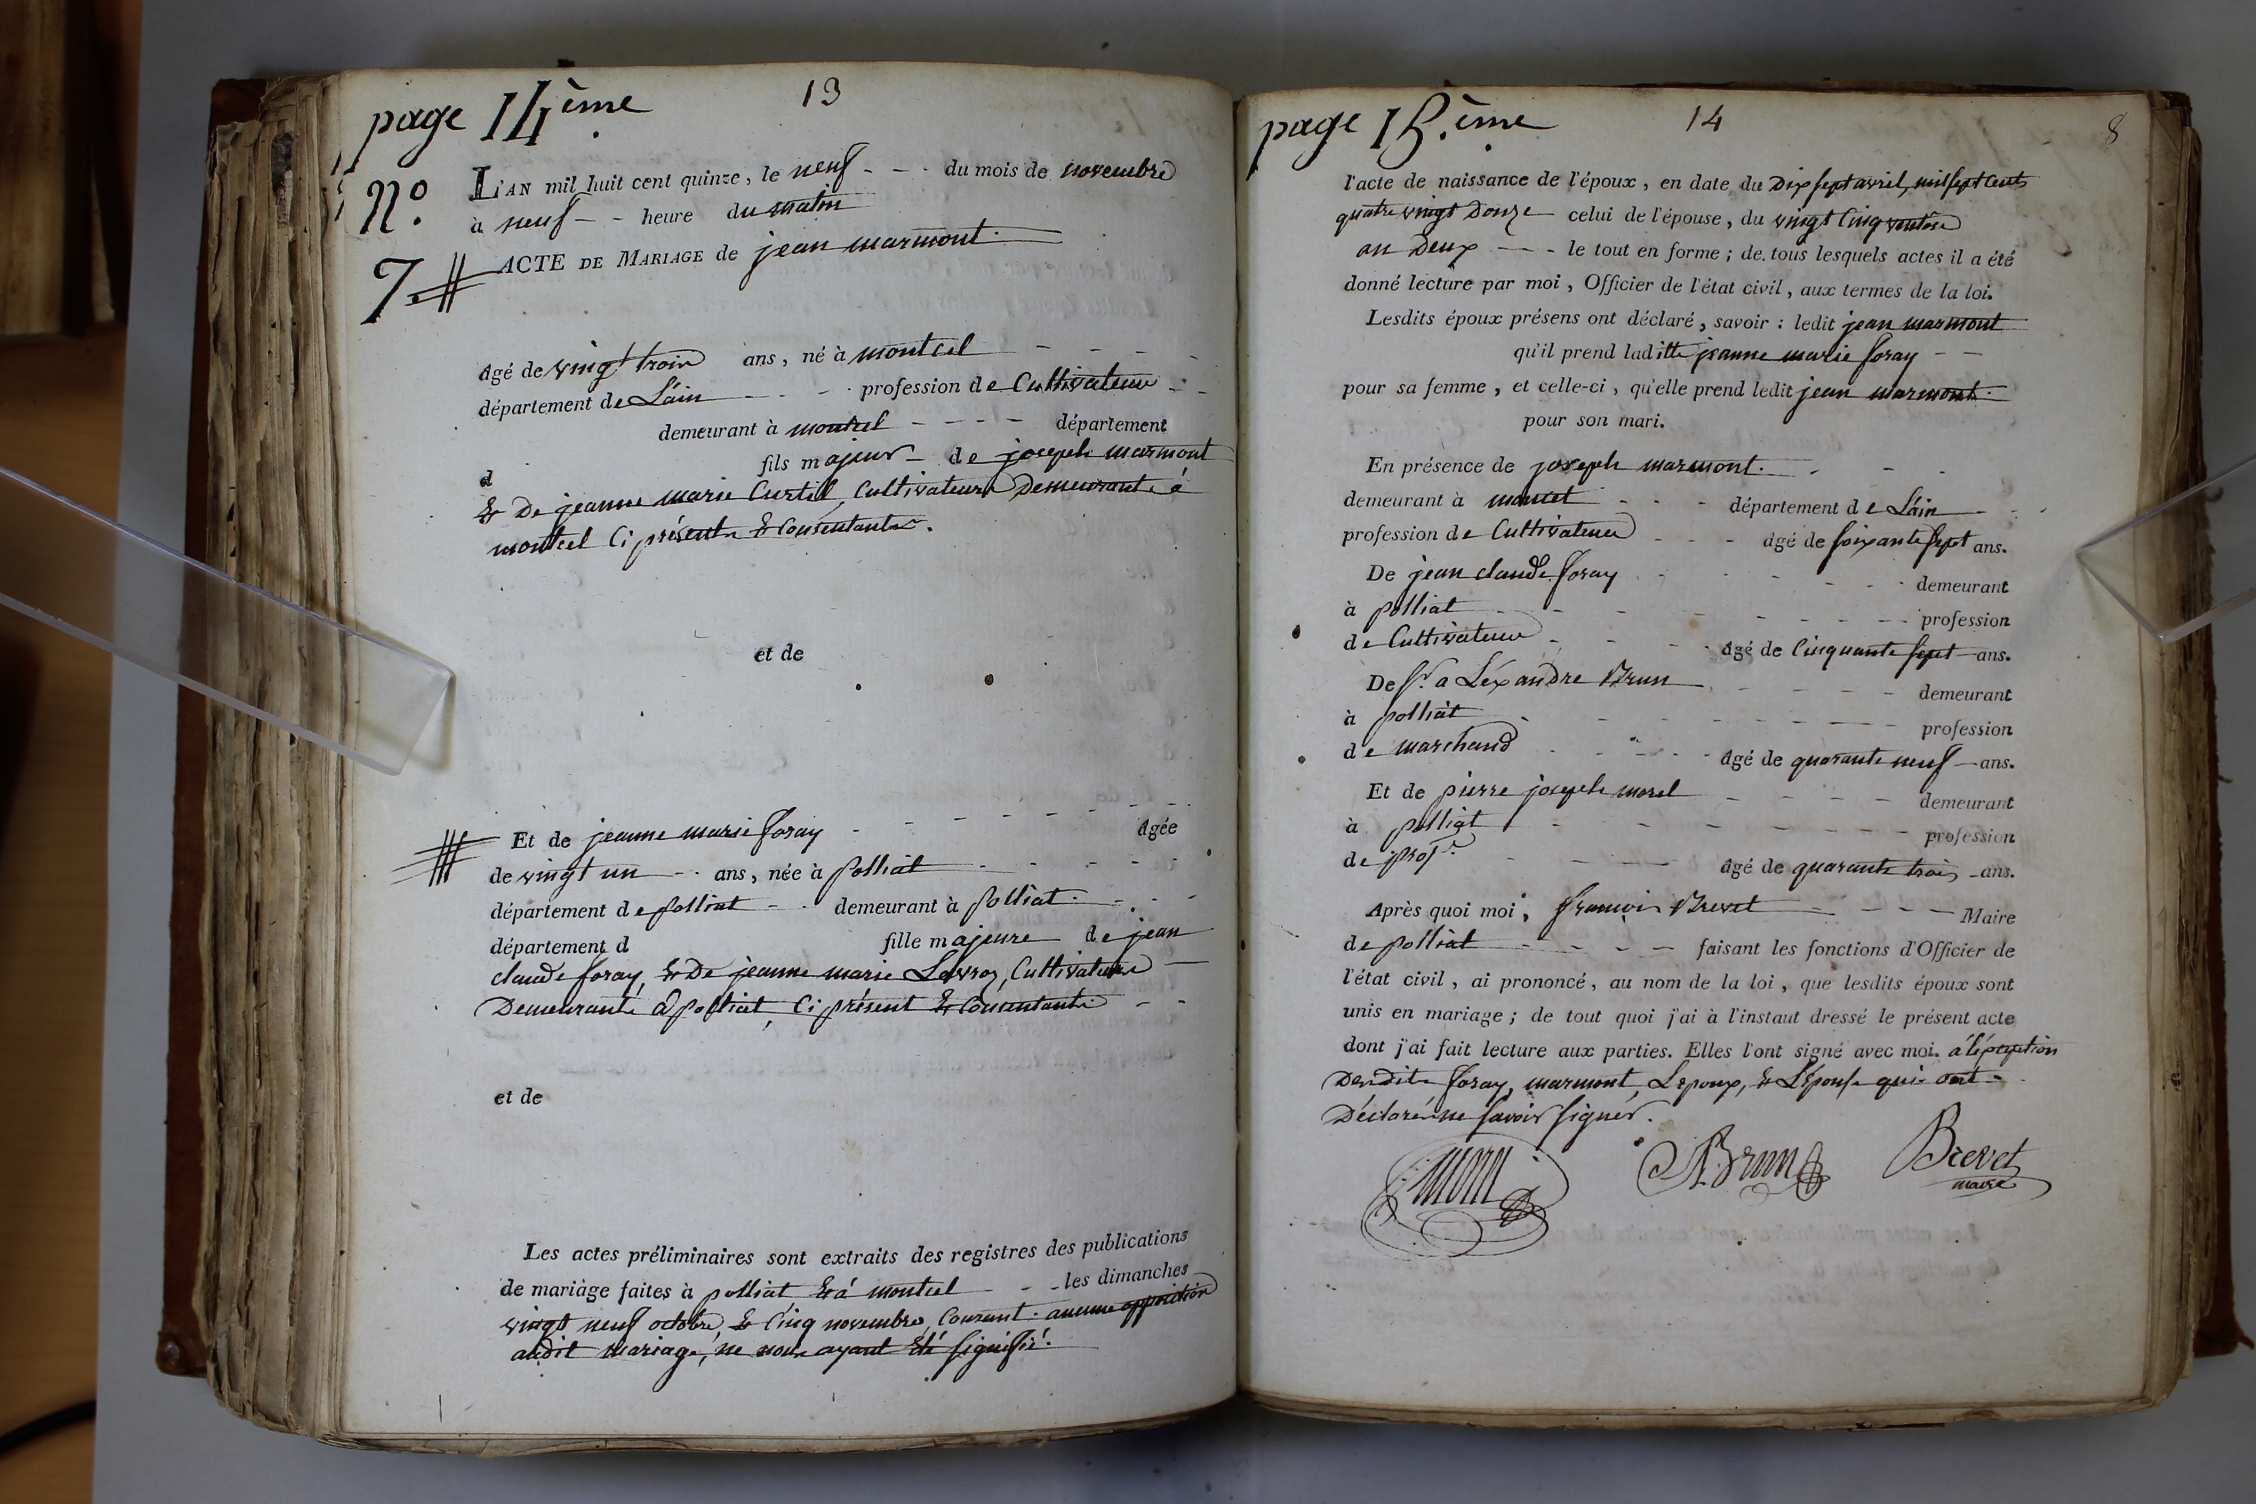 page 14ème
13
N.º
7
L'AN mil huit cent quinze, le neuf - - . du mois de novembre
à neuf - - heure du matin
ACTE DE MARIAGE de jean marmont.
Agé de vingt trois ans, né à montcel - - - -
département de L'ain - - - profession de Cultivateur - -
demeurant à montcel - - - - département
d fils majeur de joseph marmont
& De jeanne marie Curtil, Cultivateurs Demeurants à
montcel Ci présents & Consentants.
et de
Et de jeanne marie foray - - - - - - - Agée
de vingt un - - ans, née à polliat - - - - -
département de polliat - . demeurant à polliat. - - -
département d fille majeure de jean
claude foray, & De jeanne marie Levroz, Cultivateurs
Demeurants à polliat, Ci présent & Consentants - -
et de
Les actes préliminaires sont extraits des registres des publications
de mariàge faites à polliat & à montcel - - les dimanches
vingt neuf octobre, & Cinq novembre, Courant. aucune opposition
audit mariage, ne nous ayant été signifié.
page 15.ème
14
8
l'acte de naissance de l'époux, en date du Dix sept avril, mil sept Cents
quatre vingt Douze celui de l'épouse, du vingt Cinq ventose
an Deux - - - le tout en forme; de tous lesquels actes il a été
donné lecture par moi, Officier de l'état civil, aux termes de la loi.
Lesdits époux présens ont déclaré, savoir : ledit jean marmont
qu'il prend laditte jeanne marie foray - -
pour sa femme, et celle-ci, qu'elle prend ledit jean marmont.
pour son mari.
En présence de joseph marmont. - - -
demeurant à montcel - - - département de L'ain - -
profession de Cultivateur - - - Agé de soixante sept ans.
De jean claude foray - - - - - demeurant
à polliat - - - - - - - - profession
de Cultivateur - - - - Agé de Cinquante sept ans.
De S.r a Léxandre Brun - - - - demeurant
à polliat - - - - - - - - profession
de marchand - - - - - Agé de quarante neuf ans.
Et de pierre joseph morel - - - - demeurant
à polliat - - - - - - - profession
de prop.re - - - Agé de quarante trois ans.
Après quoi moi, françois Brevet - - - - Maire
de polliat - - - - faisant les fonctions d'Officier de
l'état civil, ai prononcé, au nom de la loi, que lesdits époux sont
unis en mariage; de tout quoi j'ai à l'instant dressé le présent acte
dont j'ai fait lecture aux parties. Elles l'ont signé avec moi. à l'éxception
Desdits foray, marmont, L'époux, & L'épouse qui ont
Déclaré ne savoir signer.
morel
A. Brun
Brevet
maire